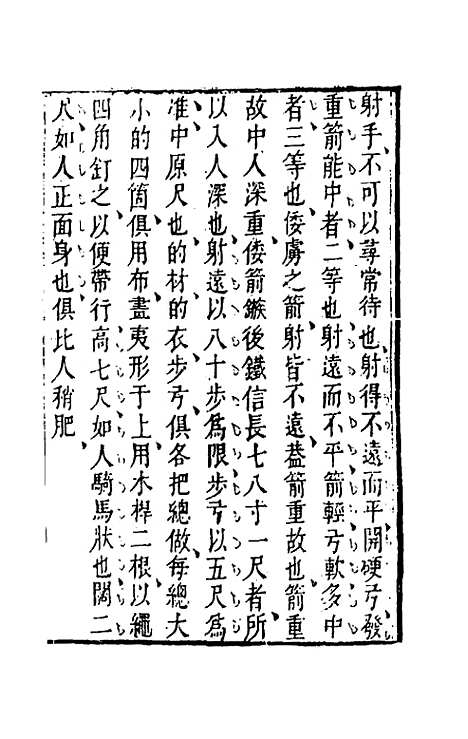 射手不可以尋常待也射得不遠而平開硬弓發
重箭能中者二等也射遠而不平箭輕弓軟多中
者三等也倭虜之箭射皆不遠葢箭重故也箭重
故中人深重倭箭鏃後鐵信長七八寸一尺者所
以入人深也射遠以八十步爲限步弓以五尺爲
准中原尺也的材的衣步弓俱各把總做每總大
小的四箇俱用布畫夷形于上用木桿二根以繩
四角釘之以便帶行高七尺如人騎馬狀也闊二
尺如人正面身也俱比人稍肥